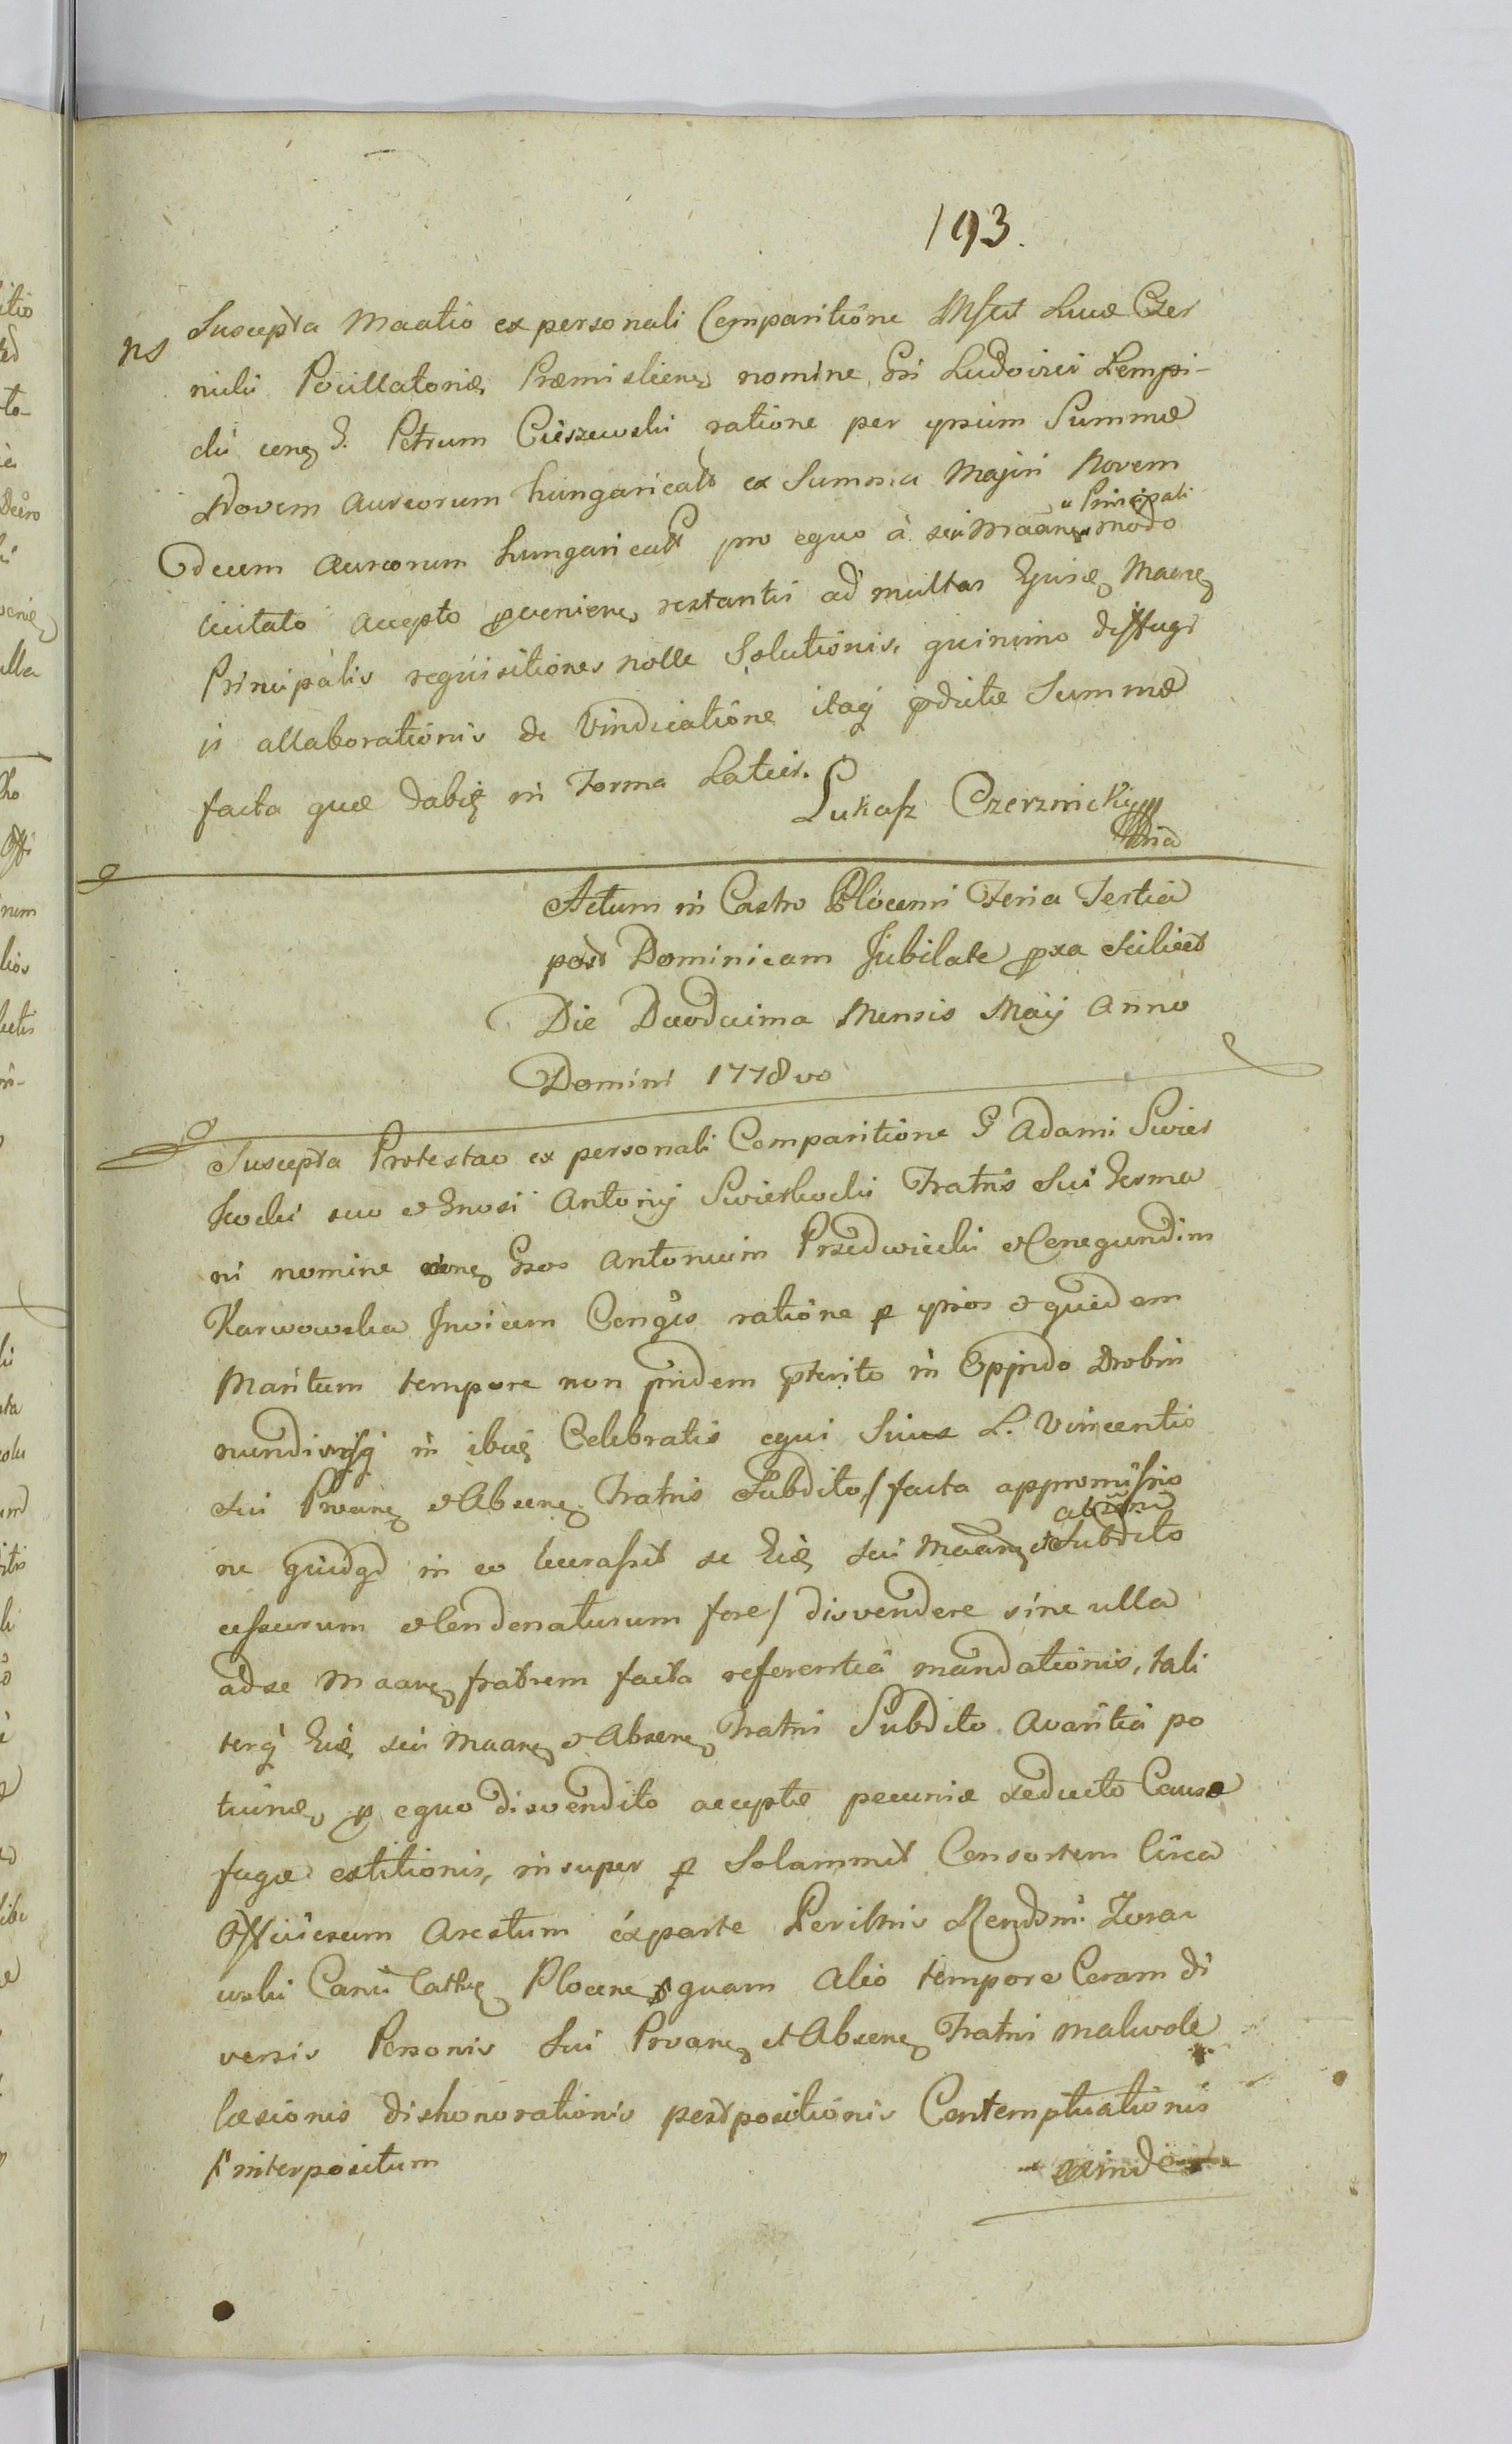 193.
ns
Suscepta Maatio ex personali Comparitione Luca Czer
nicki Pocillatoris Præmisliens nomine Ludovici Lempi-
cki G. Petrum Cieszewski ratione per ipsum Summæ
Novem Aureorum hungarical ex Summa Majori Novem
"Principali
decem Aureorum hungarical pro equo à sui Maane modo
licitato accepto provenien restantis ad multas Maane
Principalis requisitiones nolle Solutionis, quinimo diffugi
ii allaborationis de Vindicatione itaq pdictæ Summæ
facta quæ dabit in Forma Latiei.
Lukasz Czerznicky
Actum in Castro Plocensi Feria Tertia
post Dominicam Jubilate pxa scilicet
Die Duodecima Mensis Maij Anno
Domini 1778vo
Suscepta Protestao ex personali Comparitione G Adami Swier
kocki suo et Gnosi Antonij Swierkocki Fratris Sui Germa
ni nomine Antonium Przedwiecki et Cunegundim
Karwowska Invicem Conges ratione p ipsos et quidem
Maritum tempore non pridem pterito in Oppido Drobin
nundinisq in ibid Celebratis equi Sui L. Vincentio
Sui Proane et Absene Fratris Subdito,/ facta appromissio
ne quidqd in eo lucrassit se Sui Maane et Subdito
cessurum et Condonaturum fore/ disvendere sine ulla
ad se Maane fratrem facta referentiâ mandationis, tali
terq sui Maane et Absene Fratris Subdito Avaritiâ po
p equo disvendito acceptæ pecuniæ seducto Causæ
fugæ extitionis, insuper p Solammet Consortem Circa
Officiosum Arestum ex parte Perillris Rendsmi
wski Canci Cathe Plocene quam alio tempore Coram di
versis Personis Sui Proane et Absene Fratris malevole
læsionis dishonorationis postpositionis Contemptuationis
interpositum